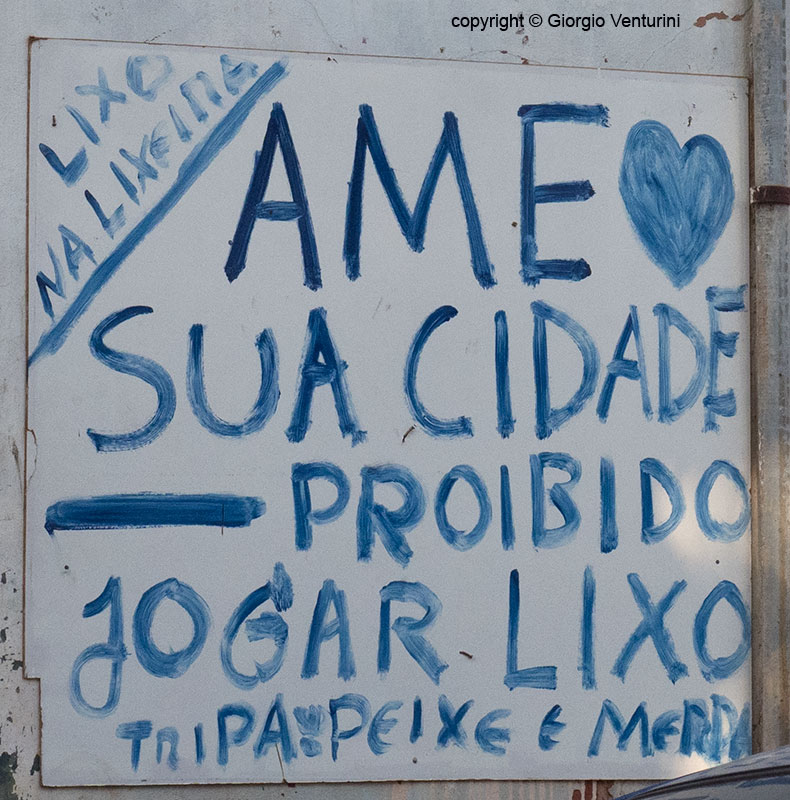 copyright © Giorgio Venturini
LIXO
NA LIXEIRA
AME
SUA CIDADE
— PROIBIDO
JOGAR LIXO
TRIPA PEIXE E MERDA